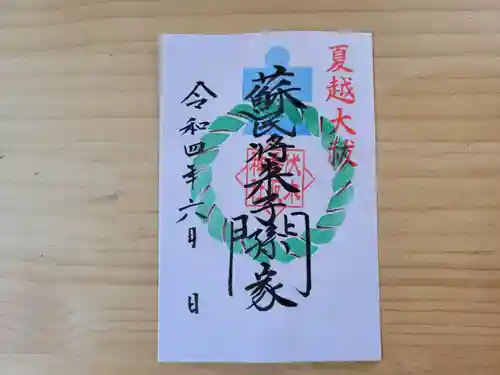 夏越大祓
蘇民将来子孫家門
令和四年六月 日